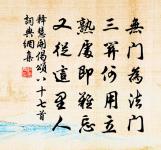 無門為法門
三界何用立
熟處即難忘
又從這里入
釋慧開偈頌八十七首
詞典網集